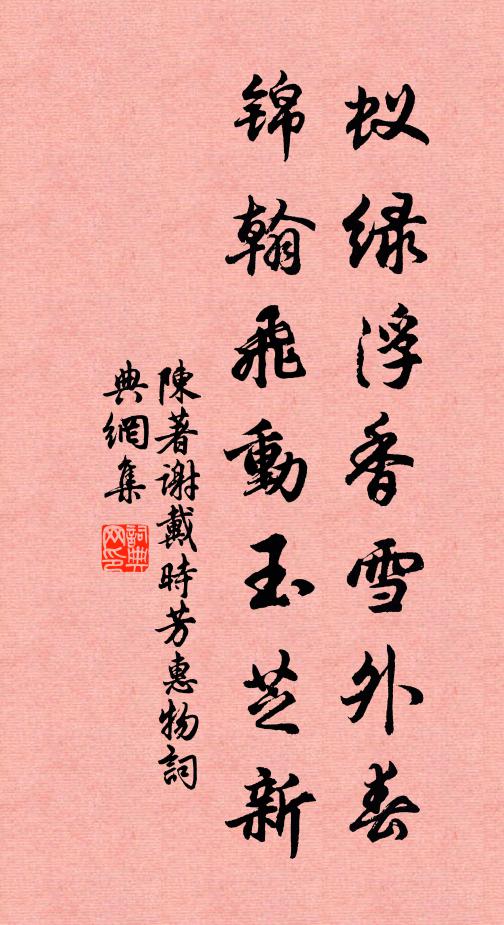 蚁绿浮香雪外春
锦翰飞動玉芝新
陳著谢戴時芳惠物詞
典網集
詞典网印